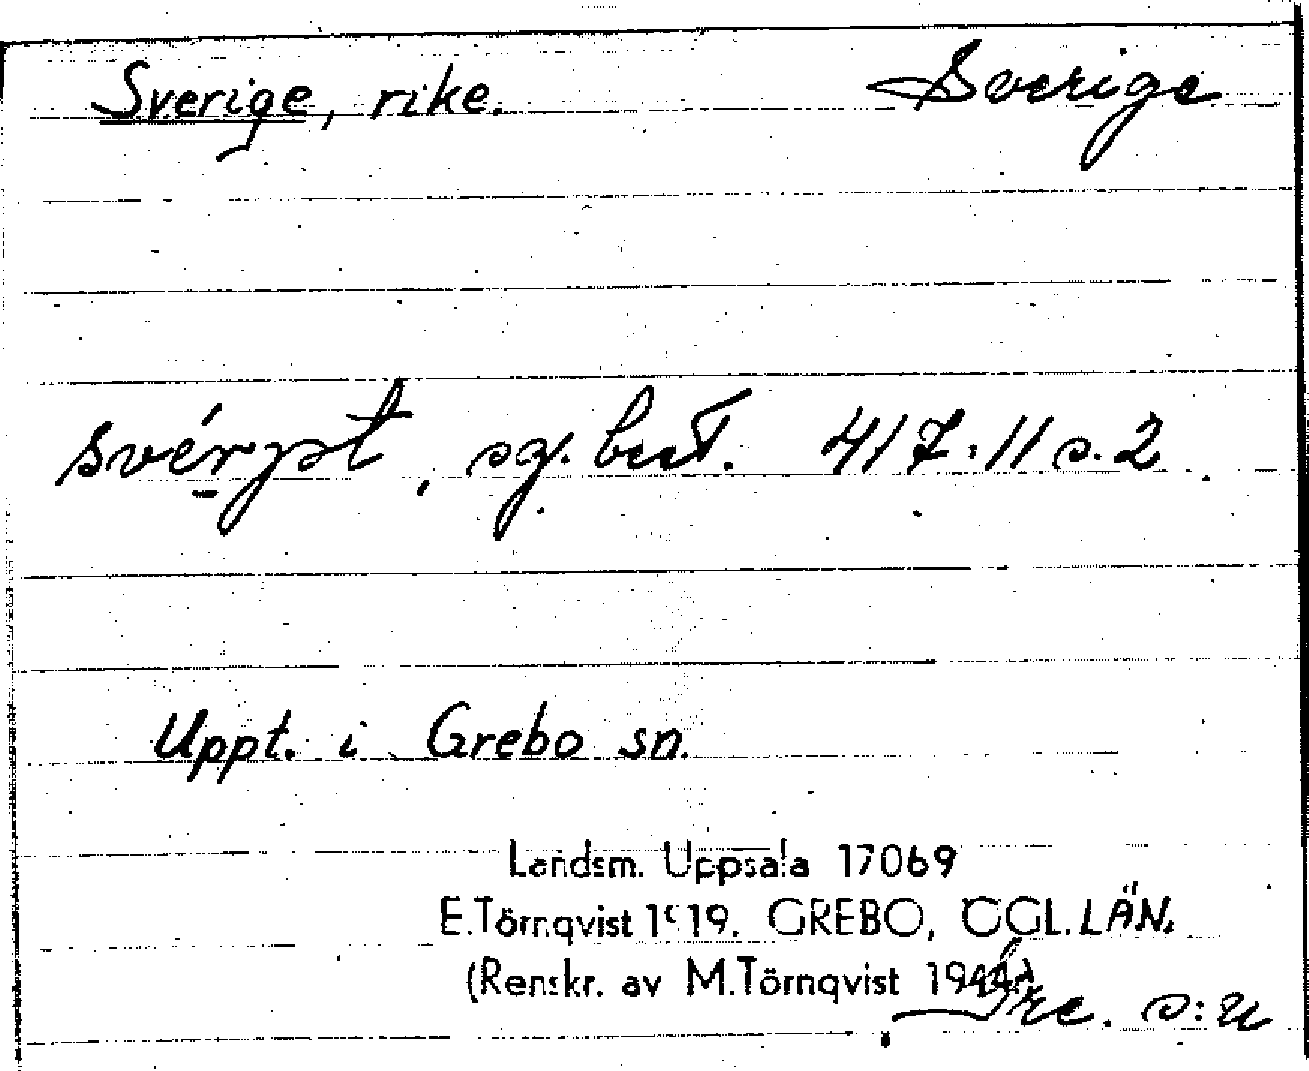 Sverige, rike. Sverige
svérgət, sg. best. 417:11 s.2
Uppt. i Grebo sn.
Landsm. Uppsala 17069
E.Törnqvist 1919. GREBO, ÖGL. LÄN.
(Renskr. av M.Törnqvist 1944)